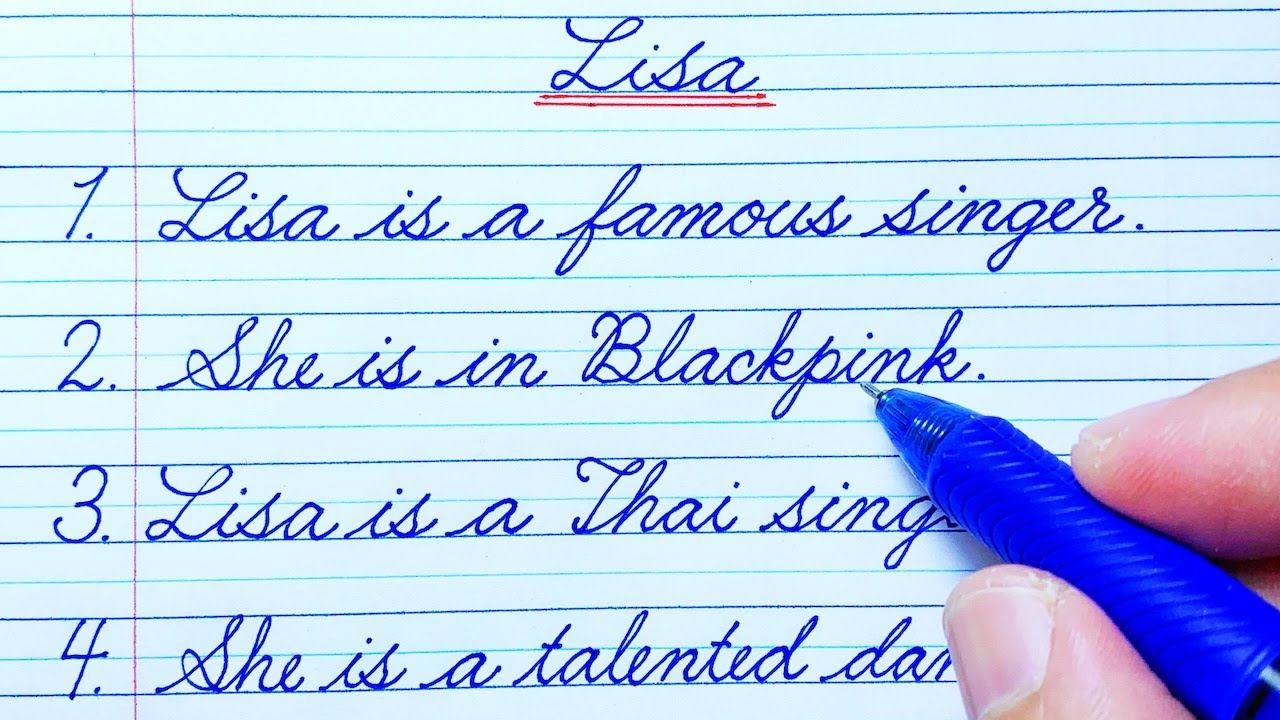 Lisa
1. Lisa is a famous singer.
2. She is in Blackpink.
3. Lisa is a Thai
4. She is a talented